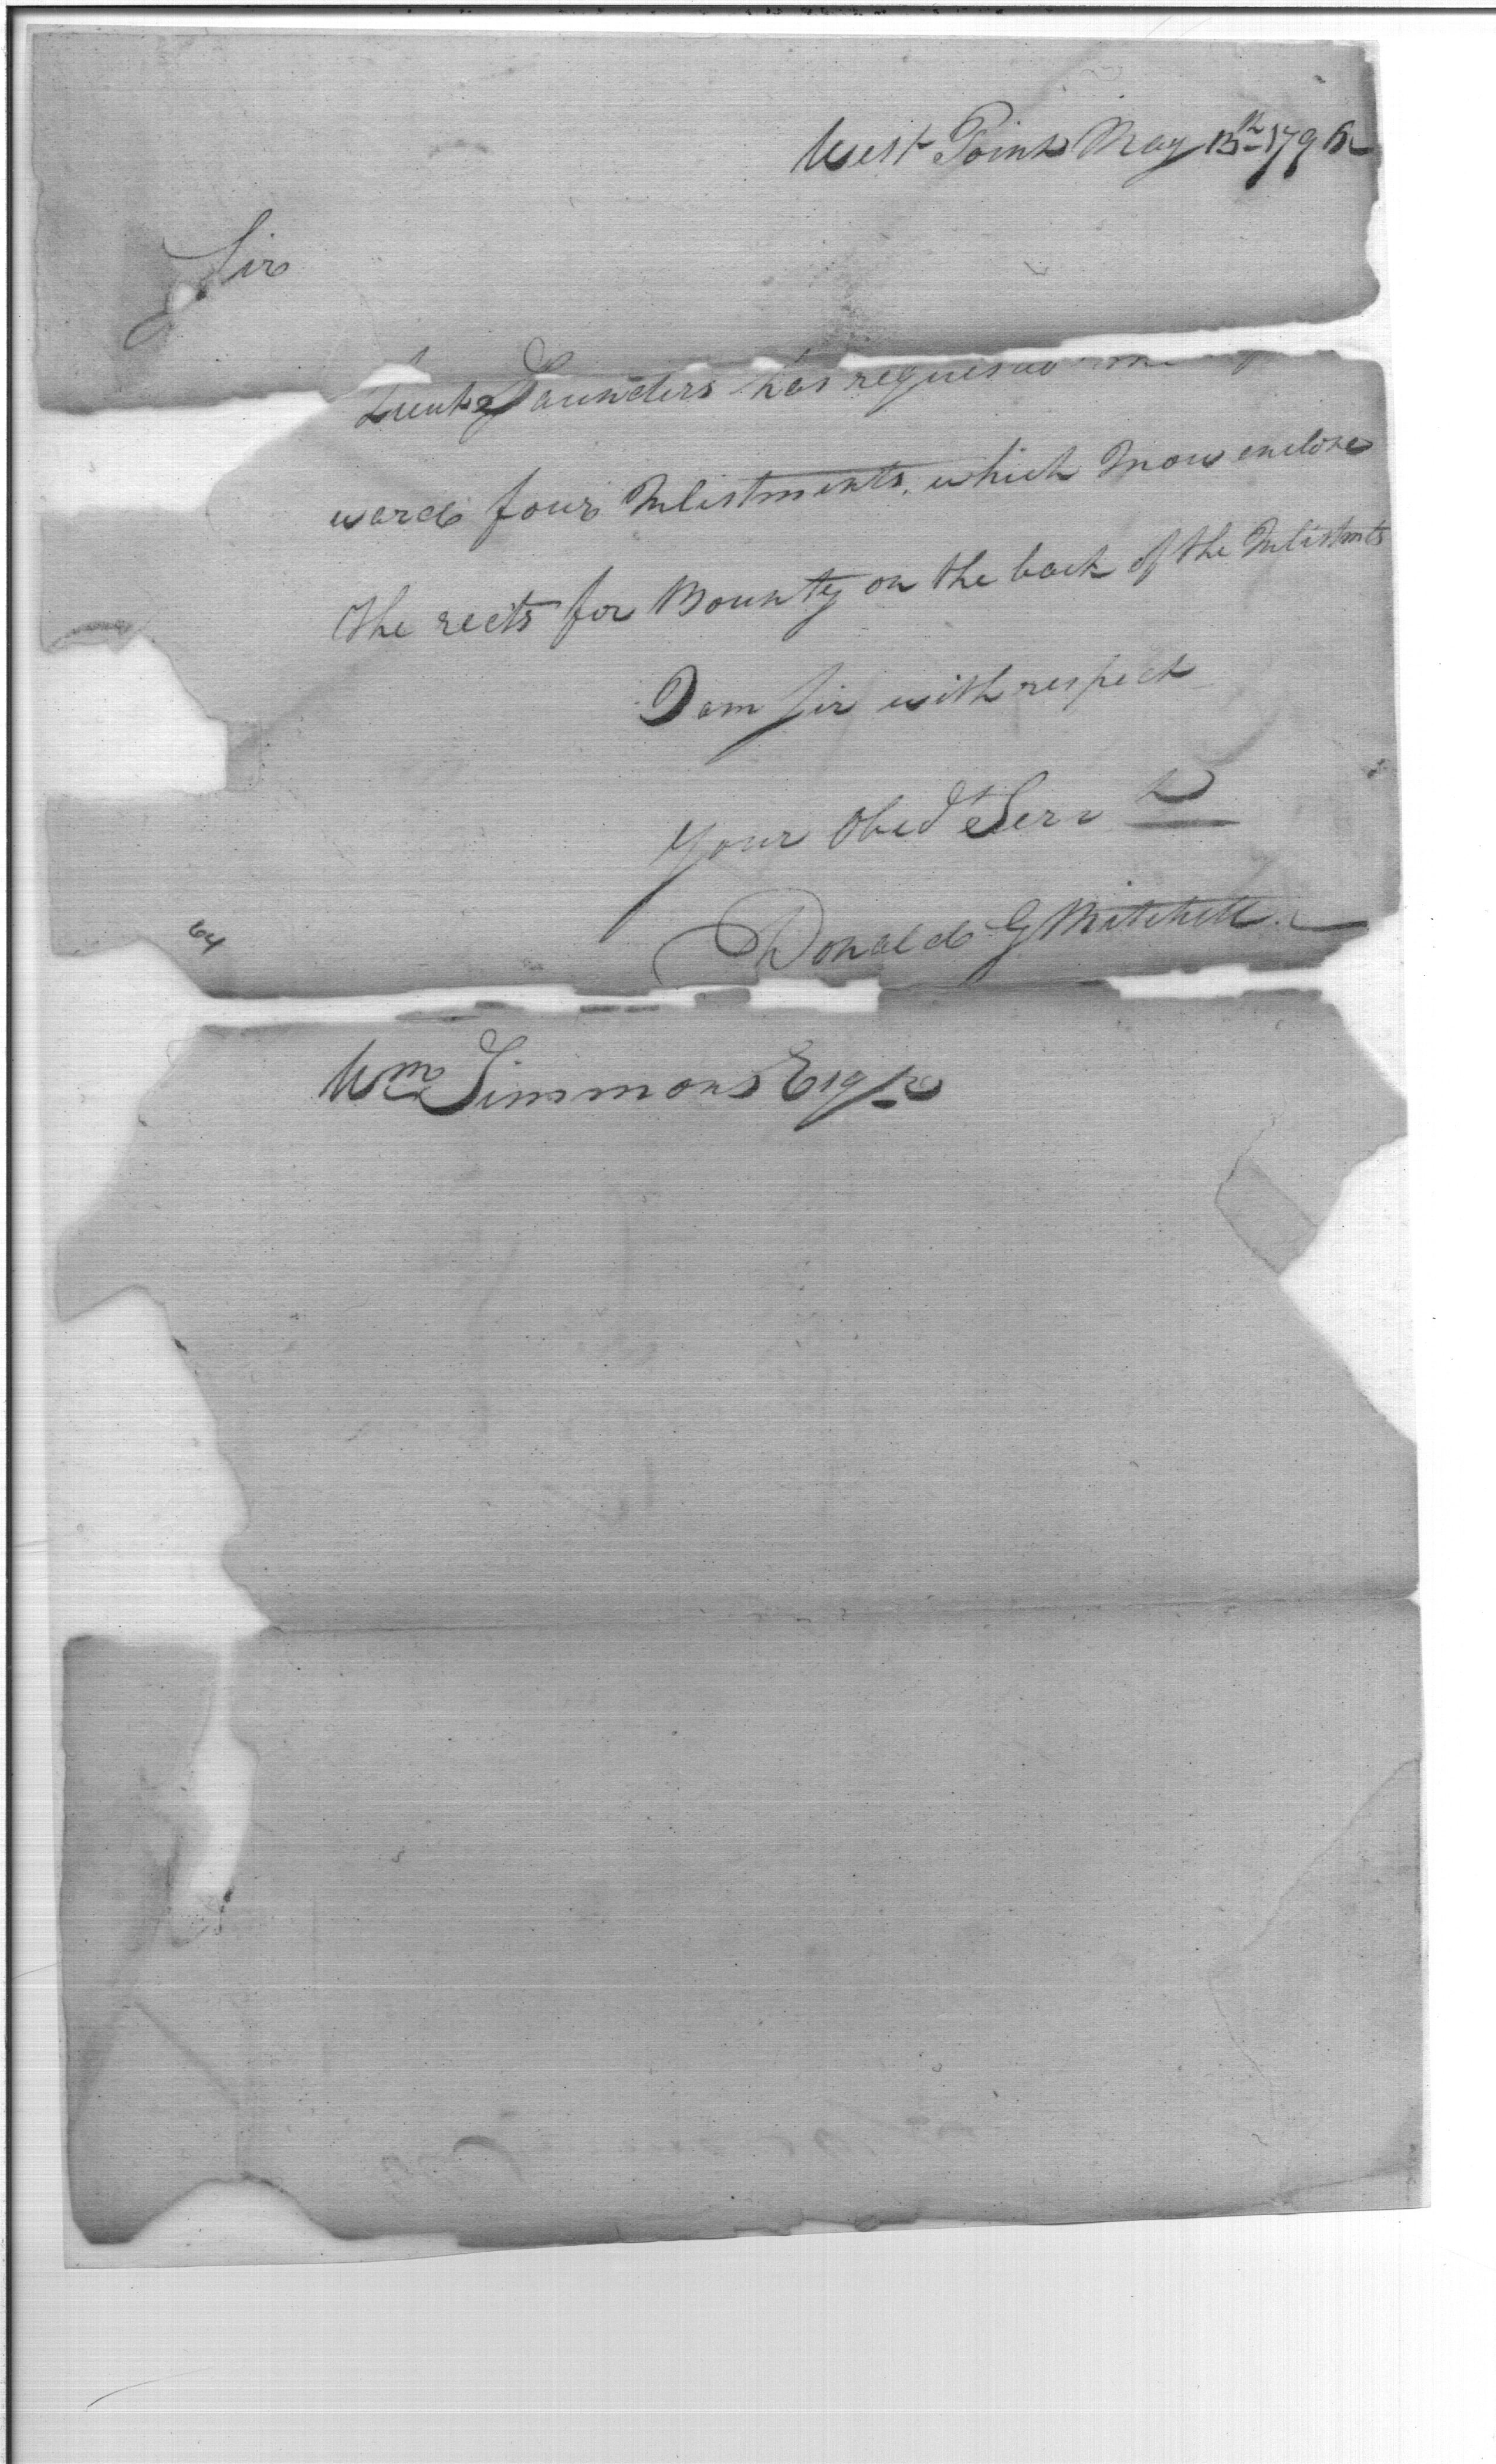 West Point May 13th 1796
Sir
Lieut Saunders has requested me
ward four Inlistments, which I now enclose
the rects for Bounty on the back of the Inlistmts
I am Sir with respect
Your Obedt Servt
Donald G Mitchell
64
Wm Simmons Esqre